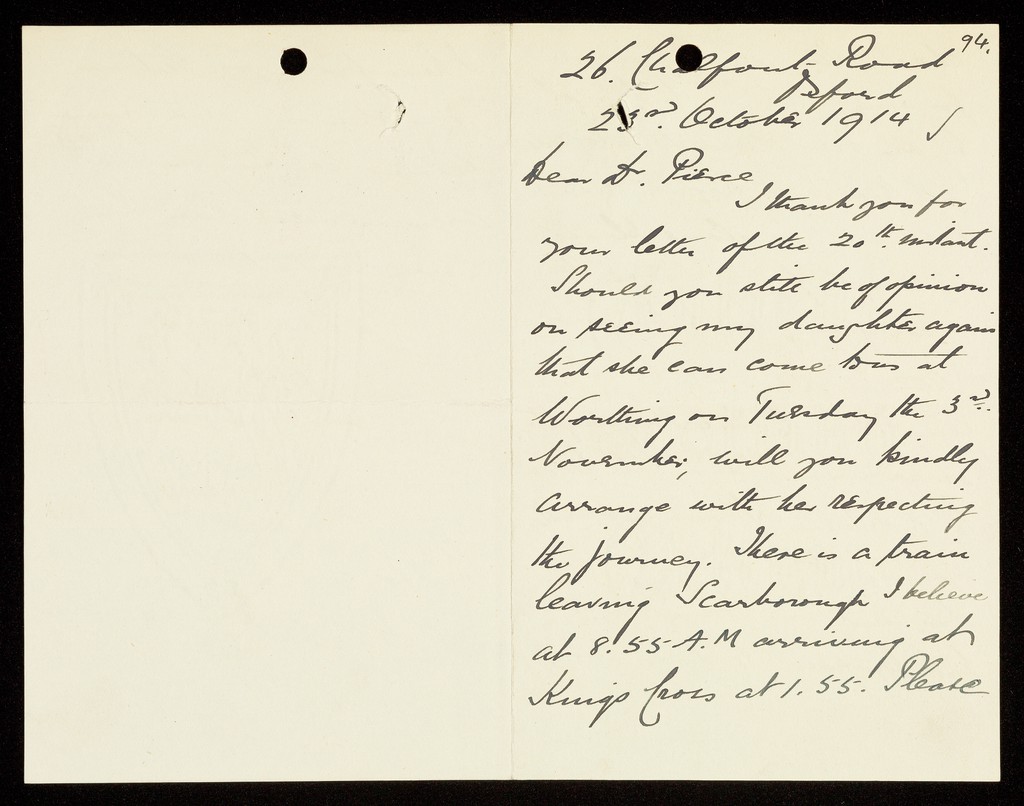 94.
26. Chalfont Road
Oxford
23rd. October 1914
Dear Dr. Pierce
I thank you for
your letter of the 20th. instant.
Should you still be of opinion
on seeing my daughter again
that she can come to us at
Worthing on Tuesday the 3rd.
November, will you kindly
arrange with her respecting
the journey. There is a train
leaving Scarborough I believe
at 8.55 A.M arriving at
Kings Cross at 1.55. Please